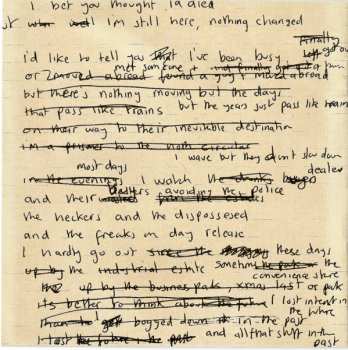 I bet you thought I'd died
well I'm still here, nothing changed
Finally
i'd like to tell you that I've been busy got ou
met someone + and finally got a
or moved abroad found a guy + moved abroad
but there's nothing moving but the days
that pass like trains but the years just pass like trains
on their way to their inevitable destination
I'm a prisoner to the north circular
I wave but they don't slow down
most days dealers
in the evenings I watch the drunks
and their dealers avoiding the police
the neckers and the dispossesed
and the freaks on day release
I hardly go out these days
up by the industrial estate sometimes the park the
convenience store
up by the business park, xmas last or park
its better to think about the future I lost interest in
the future
than to get bogged down in the past
I lost the future, the past and all that shit in the
past